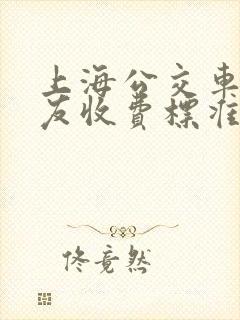 上海公交車
友收費標准
佟竟然